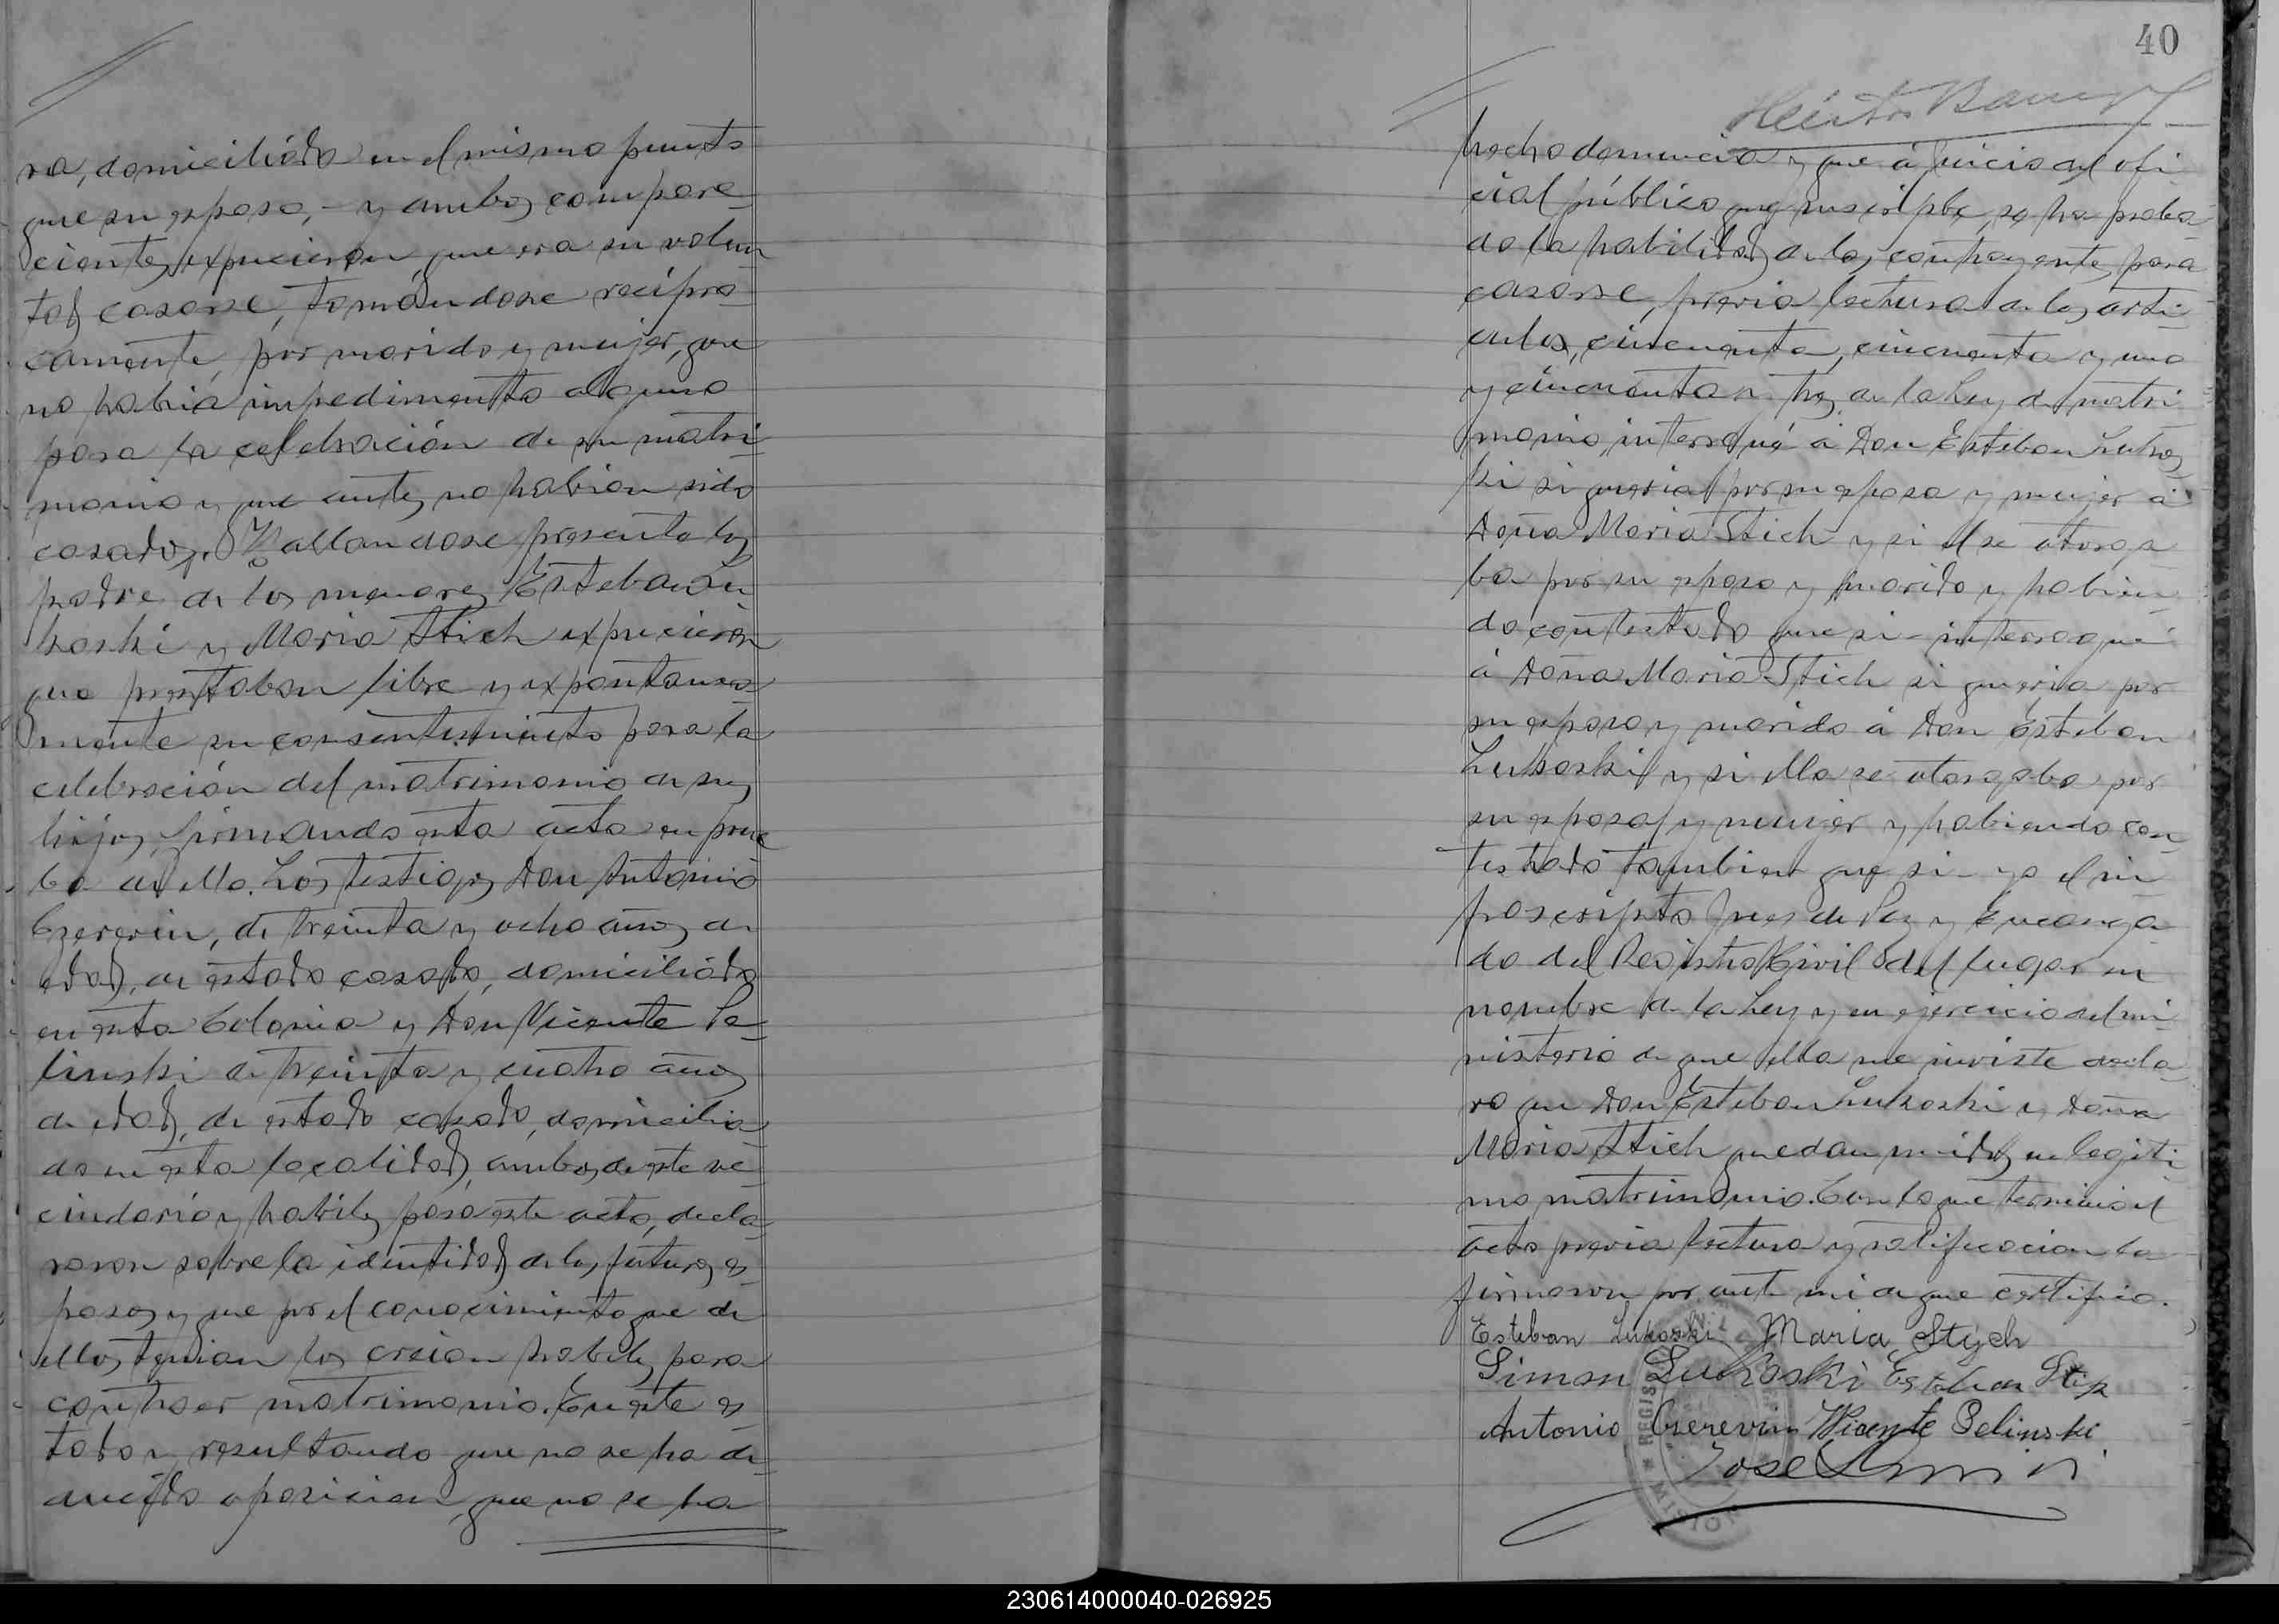 ra, domiciliada en el mismo punto
que su esposo, - y ambos compare-
cientes expucieron, que era su volun
tad casarse, tomandose recípro-
camente, por marido y mujer, que
no habia impedimento alguno
para la celebración de su matri-
monio y que antes no habian sido
casados. Hallandose presente los
padres de los menores Esteban Lu
koski y Maria Stich expucieron
que prestaban libre y expontanea
mente su consentimiento para la
celebración del matrimonio de sus
hijos, firmando esta acta en prue
ba de ello. Los testigos Don Antonio
Czerevin, de treinta y ocho años de
edad, de estado casado, domiciliado
en esta Colonia y Don Vicente Pe-
linski de treinta y cuatro años
de edad, de estado casado, domicilia-
do en esta localidad, ambos de este ve-
cindario y habiles para este acto, decla-
raron sobre la identidad de los futuros es-
posos y que por el conocimiento que de
ellos tenian los creian habiles para
contraer matrimonio. En este es-
tado y resultando que no se ha de-
ducido oposicion, que no se ha
40
Héctor
hecho denuncia y que á juicio del ofi
cial público que suscribe, se ha proba-
do la habilidad de los contrayentes para
casarse, previa lectura de los arti-
culos, cincuenta, cincuenta y uno
y cincuenta y tres de la Ley de matri
monio, interogué á Don Esteban Lukos
ki si queria por su esposa y mujer á
Doña Maria Stich y si el se otorga
ba por su esposo y marido y habien
do contestado que si - interrogué
á Doña Maria Stich si queria por
su esposo y marido á Don Esteban
Lukoski y si ella se otorgaba por
su esposa y mujer y habiendo con
testado tambien que si - yo el in
frascripto Juez de Paz y Encarga
do del Registro Civil del lugar en
nombre de la Ley y en ejercicio del mi-
nisterio de que ella me inviste decla-
ro que Don Esteban Lukoski y Doña
Maria Stich quedan unidos en legiti
mo matrimonio. Con lo que terminó el
acto previa lectura y ratificacion la
firmaron por ante mi de que certifico.
Esteban Lukoski Maria Stych
Simon Lukoski Esteban
Antonio Czerevin Vicente Pelinski
Jose
REGIS
230614000040-026925